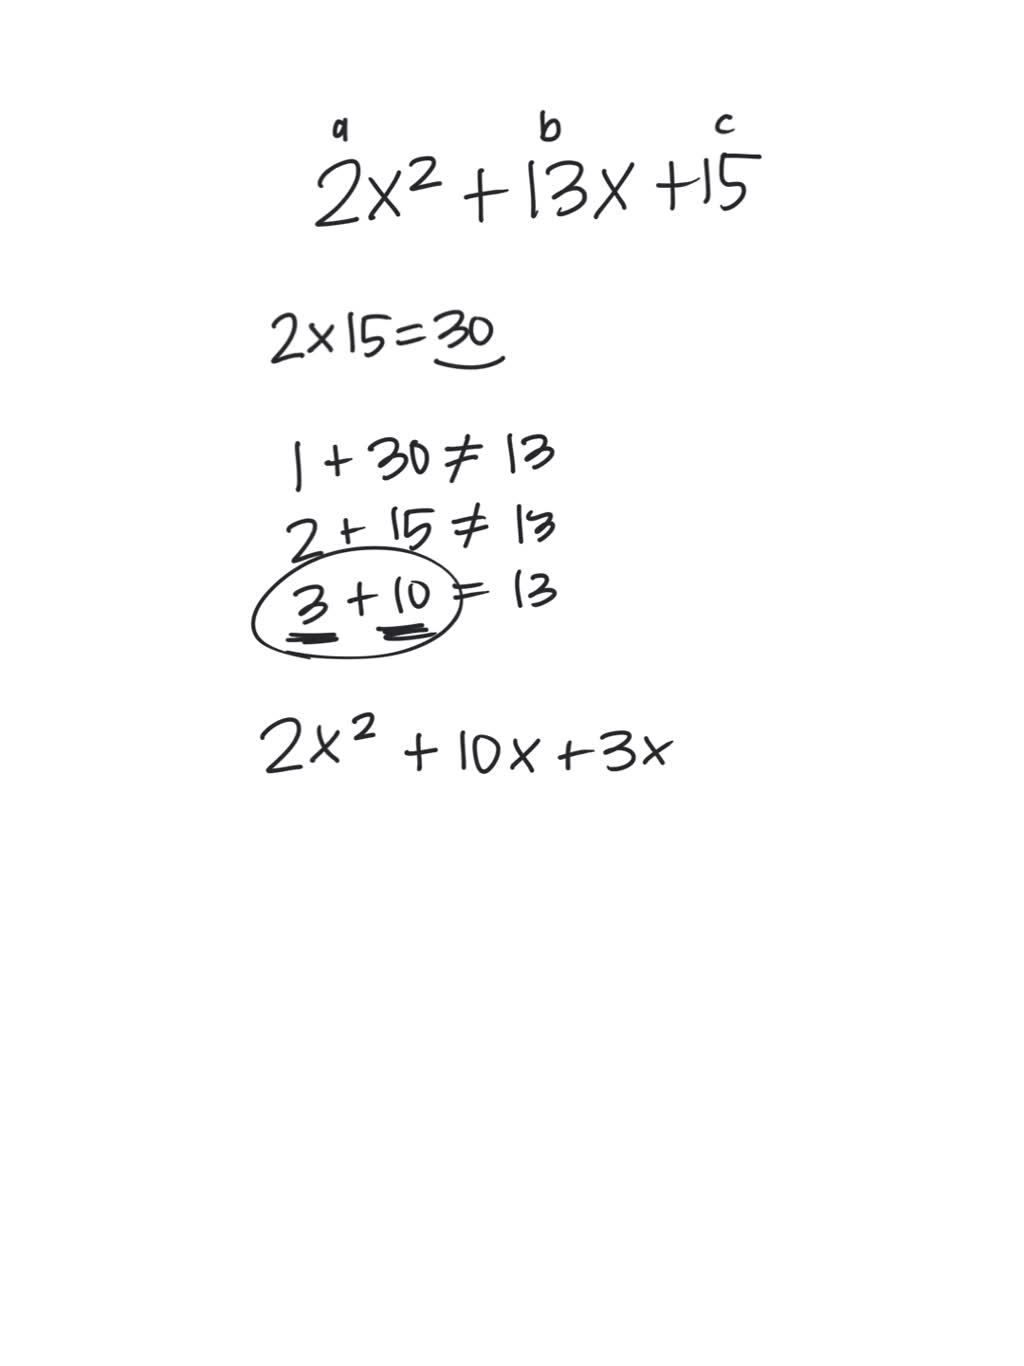 a b c
2x² + 13x + 15
2 x 15 = 30
1 + 30 ≠ 13
2 + 15 ≠ 13
3 + 10 = 13
2x² + 10x + 3x